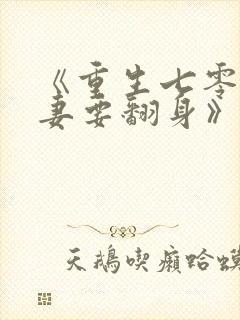 《重生七零
妻要翻身》
天鵝喫癩蛤蟆